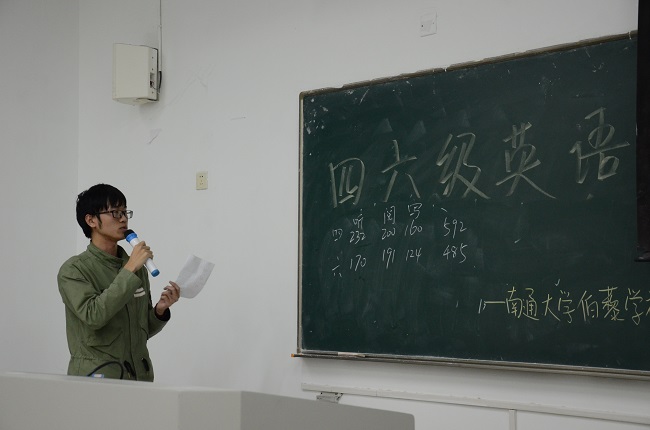 四六级英语
听 阅 写
四 232 200 160 592
六 170 191 124 485
——南通大学伯藜学